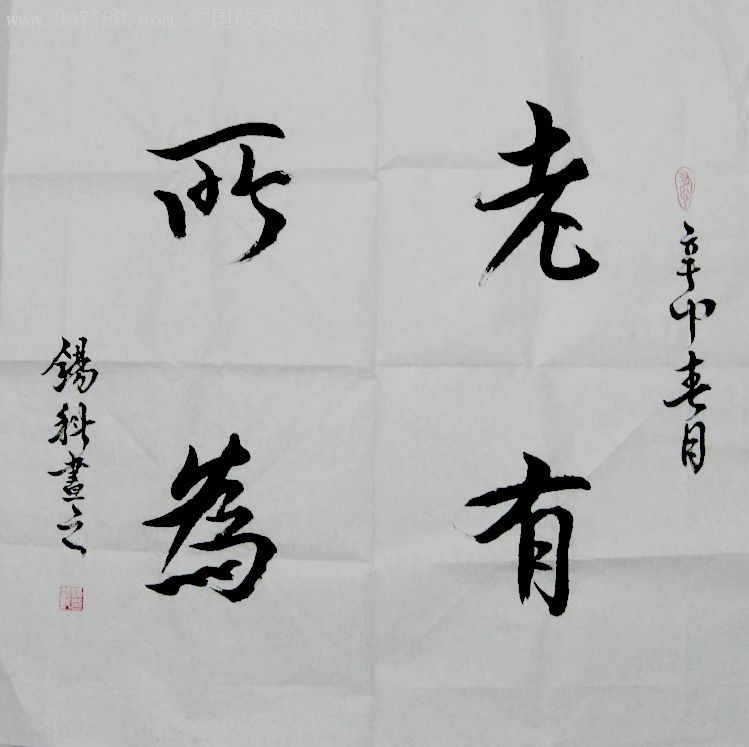 www.997788.com 中国收藏热线
老有
所為
辛卯春月
錫科書之